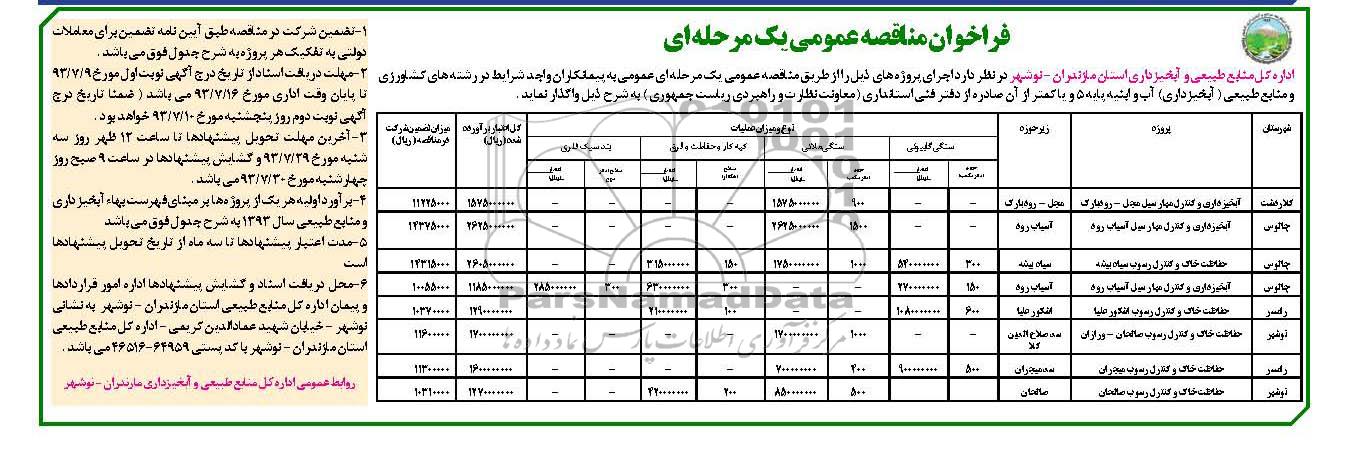 فراخوان مناقصه عمومی یک مرحله ای
اداره کل منابع طبیعی و آبخیزداری استان مازندران - نوشهر در نظر دارد اجرای پروژه های ذیل را از طریق مناقصه عمومی یک مرحله ای عمومی به پیمانکاران واجد شرایط در رشته های کشاورزی
و منابع طبیعی ( آبخیزداری ) آب و ابنیه پایه ۵ و یا کمتر از آن صادره از دفتر فنی استانداری (معاونت نظارت و راهبردی ریاست جمهوری ) به شرح ذیل واگذار نماید .
شهرستان پروژه زیرحوزه نوع و میزان عملیات کل اعتبار برآورده شده (ریال) میزان تضمین شرکت در مناقصه (ریال)
سنگی گابیونی سنگی ملاتی کپه کار و حفاظت و قرق بند سبک فلزی
کلاردشت آبخیزداری و کنترل مهار سیل مجل - رودبارک مجل - رودبارک – – ۹۰۰ ۱۵۷۵۰۰۰۰۰۰ – – – – ۱۵۷۵۰۰۰۰۰۰ ۱۱۲۲۵۰۰۰
چالوس آبخیزداری و کنترل مهار سیل آسیاب رود آسیاب رود – – ۱۵۰۰ ۲۶۲۵۰۰۰۰۰۰ – – – – ۲۶۲۵۰۰۰۰۰۰ ۱۴۳۷۵۰۰۰
چالوس حفاظت خاک و کنترل رسوب سیاه بیشه سیاه بیشه ۳۰۰ ۵۴۰۰۰۰۰۰۰ ۱۰۰۰ ۱۷۵۰۰۰۰۰۰۰ ۱۵۰ ۳۱۵۰۰۰۰۰۰ – – ۲۶۰۵۰۰۰۰۰۰ ۱۴۳۱۵۰۰۰
چالوس آبخیزداری و کنترل مهار سیل آسیاب رود آسیاب رود ۱۵۰ ۲۷۰۰۰۰۰۰۰ – – ۳۰۰ ۶۳۰۰۰۰۰۰۰ ۳۰۰ ۲۸۵۰۰۰۰۰۰ ۱۱۸۵۰۰۰۰۰۰ ۱۰۰۵۵۰۰۰
رامسر حفاظت خاک و کنترل رسوب اشکور علیا اشکور علیا ۶۰۰ ۱۰۸۰۰۰۰۰۰۰ – – ۱۰۰ ۲۱۰۰۰۰۰۰۰ – – ۱۲۹۰۰۰۰۰۰۰ ۱۰۳۷۰۰۰۰
نوشهر حفاظت خاک و کنترل رسوب صالحان - ورازان سد صلاح الدین کلا – – ۱۰۰۰ ۱۷۰۰۰۰۰۰۰۰ – – – – ۱۷۰۰۰۰۰۰۰۰ ۱۱۶۰۰۰۰۰
رامسر حفاظت خاک و کنترل رسوب میجران سد میجران ۵۰۰ ۹۰۰۰۰۰۰۰۰ ۴۰۰ ۷۰۰۰۰۰۰۰۰ – – – – ۱۶۰۰۰۰۰۰۰۰ ۱۱۳۰۰۰۰۰
نوشهر حفاظت خاک و کنترل رسوب صالحان صالحان – – ۵۰۰ ۸۵۰۰۰۰۰۰۰ ۲۰۰ ۴۲۰۰۰۰۰۰۰ – – ۱۲۷۰۰۰۰۰۰۰ ۱۰۳۱۰۰۰۰
۱-تضمین شرکت در مناقصه طبق آیین نامه تضمین برای معاملات
دولتی به تفکیک هر پروژه به شرح جدول فوق می باشد .
۲-مهلت دریافت اسناد از تاریخ درج آگهی نوبت اول مورخ ۹۳/۷/۹
تا پایان وقت اداری مورخ ۹۳/۷/۱۶ می باشد ( ضمنا تاریخ درج
آگهی نوبت دوم روز پنجشنبه مورخ ۹۳/۷/۱۰ خواهد بود .
۳-آخرین مهلت تحویل پیشنهادها تا ساعت ۱۲ ظهر روز سه
شنبه مورخ ۹۳/۷/۲۹ و گشایش پیشنهادها در ساعت ۹ صبح روز
چهارشنبه مورخ ۹۳/۷/۳۰ می باشد .
۴-برآورد اولیه هر یک از پروژه ها بر مبنای فهرست بهاء آبخیزداری
و منابع طبیعی سال ۱۳۹۳ به شرح جدول فوق می باشد
۵-مدت اعتبار پیشنهادها تا سه ماه از تاریخ تحویل پیشنهادها
است
۶-محل دریافت اسناد و گشایش پیشنهادها اداره امور قراردادها
و پیمان اداره کل منابع طبیعی استان مازندران - نوشهر به نشانی
نوشهر - خیابان شهید عمادالدین کریمی - اداره کل منابع طبیعی
استان مازندران - نوشهر با کد پستی ۶۴۹۵۹-۴۶۵۱۶ می باشد .
روابط عمومی اداره کل منابع طبیعی و آبخیزداری مازندران - نوشهر
ParsNamadData
مرکز فرآوری اطلاعات پارس نماد داده ها